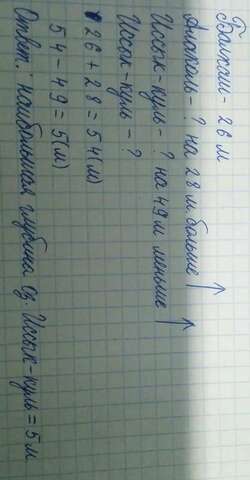 Балхаш - 26 м
Алаколь - ? на 28 м больше
Иссык-куль - ? на 49 м меньше
Иссык-куль - ?
26 + 28 = 54 (м)
54 - 49 = 5 (м)
Ответ: наибольшая глубина оз. Иссык-куль = 5 м